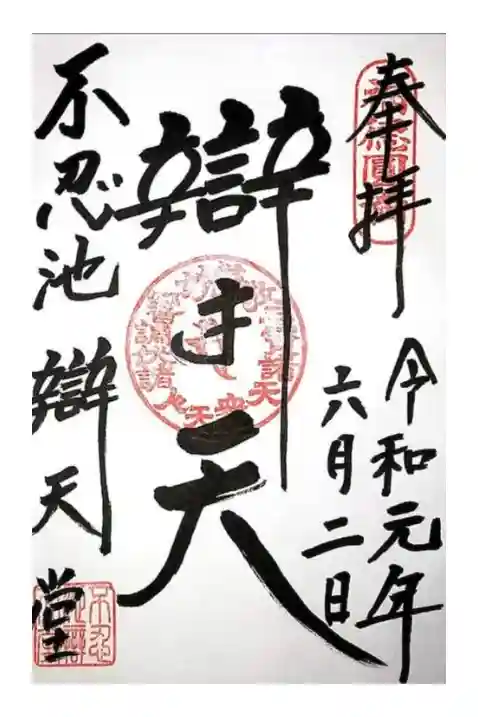 奉拝
令和元年
六月二日
辯才天
不忍池 辯天堂